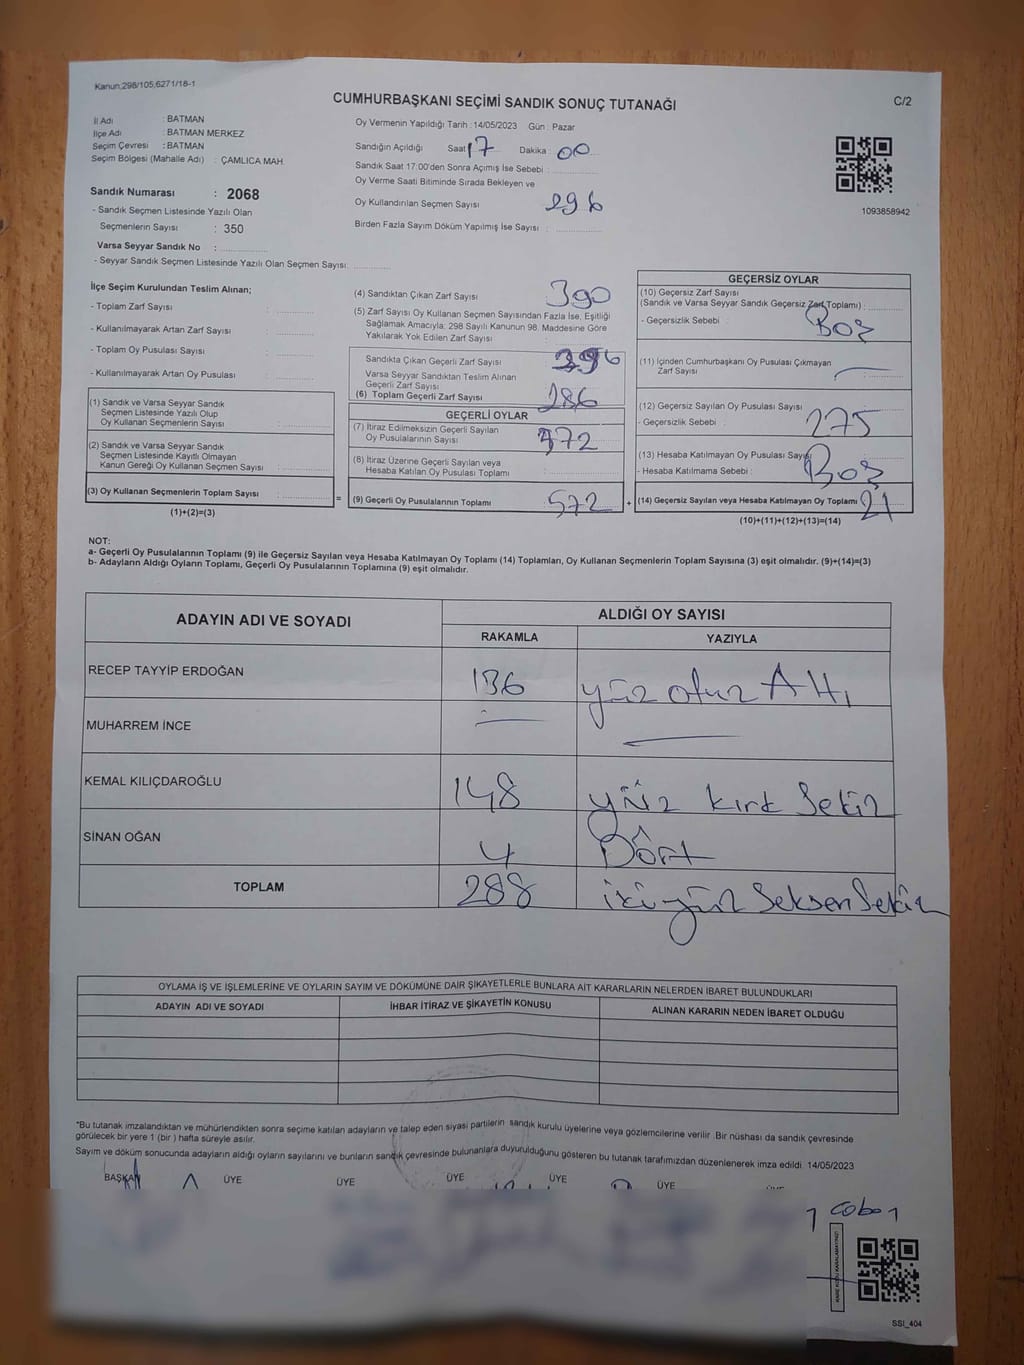 Kanun;298/105,6271/18-1
CUMHURBAŞKANI SEÇİMİ SANDIK SONUÇ TUTANAĞI
C/2
İl Adı : BATMAN
İlçe Adı : BATMAN MERKEZ
Seçim Çevresi : BATMAN
Seçim Bölgesi (Mahalle Adı) : ÇAMLICA MAH.
Sandık Numarası : 2068
- Sandık Seçmen Listesinde Yazılı Olan
Seçmenlerin Sayısı : 350
Varsa Seyyar Sandık No :
- Seyyar Sandık Seçmen Listesinde Yazılı Olan Seçmen Sayısı:
Oy Vermenin Yapıldığı Tarih : 14/05/2023 Gün : Pazar
Sandığın Açıldığı Saat 17 Dakika : 00
Sandık Saat 17:00'den Sonra Açımış İse Sebebi :
Oy Verme Saati Bitiminde Sırada Bekleyen ve
Oy Kullandırılan Seçmen Sayısı 296
Birden Fazla Sayım Döküm Yapılmış İse Sayısı :
1093858942
İlçe Seçim Kurulundan Teslim Alınan;
- Toplam Zarf Sayısı :
- Kullanılmayarak Artan Zarf Sayısı :
- Toplam Oy Pusulası Sayısı :
- Kullanılmayarak Artan Oy Pusulası :
(1) Sandık ve Varsa Seyyar Sandık
Seçmen Listesinde Yazılı Olup
Oy Kullanan Seçmenlerin Sayısı :
(2) Sandık ve Varsa Seyyar Sandık
Seçmen Listesinde Kayıtlı Olmayan
Kanun Gereği Oy Kullanan Seçmen Sayısı :
(3) Oy Kullanan Seçmenlerin Toplam Sayısı :
(1)+(2)=(3)
=
(4) Sandıktan Çıkan Zarf Sayısı 390
(5) Zarf Sayısı Oy Kullanan Seçmen Sayısından Fazla İse, Eşitliği
Sağlamak Amacıyla; 298 Sayılı Kanunun 98. Maddesine Göre
Yakılarak Yok Edilen Zarf Sayısı :
Sandıkta Çıkan Geçerli Zarf Sayısı 396
Varsa Seyyar Sandıktan Teslim Alınan
Geçerli Zarf Sayısı :
(6) Toplam Geçerli Zarf Sayısı 286
GEÇERLİ OYLAR
(7) İtiraz Edilmeksizin Geçerli Sayılan
Oy Pusulalarının Sayısı 572
(8) İtiraz Üzerine Geçerli Sayılan veya
Hesaba Katılan Oy Pusulası Toplamı :
(9) Geçerli Oy Pusulalarının Toplamı 572
+
GEÇERSİZ OYLAR
(10) Geçersiz Zarf Sayısı
(Sandık ve Varsa Seyyar Sandık Geçersiz Zarf Toplamı) :
- Geçersizlik Sebebi : Boş
(11) İçinden Cumhurbaşkanı Oy Pusulası Çıkmayan
Zarf Sayısı
(12) Geçersiz Sayılan Oy Pusulası Sayısı
- Geçersizlik Sebebi : 275
(13) Hesaba Katılmayan Oy Pusulası Sayısı
- Hesaba Katılmama Sebebi : Boş
(14) Geçersiz Sayılan veya Hesaba Katılmayan Oy Toplamı 21
(10)+(11)+(12)+(13)=(14)
NOT:
a- Geçerli Oy Pusulalarının Toplamı (9) ile Geçersiz Sayılan veya Hesaba Katılmayan Oy Toplamı (14) Toplamları, Oy Kullanan Seçmenlerin Toplam Sayısına (3) eşit olmalıdır. (9)+(14)=(3)
b- Adayların Aldığı Oyların Toplamı, Geçerli Oy Pusulalarının Toplamına (9) eşit olmalıdır.
ADAYIN ADI VE SOYADI
ALDIĞI OY SAYISI
RAKAMLA YAZIYLA
RECEP TAYYİP ERDOĞAN 136 yüz otuz Altı
MUHARREM İNCE —
KEMAL KILIÇDAROĞLU 148 yüz kırk Sekiz
SİNAN OĞAN 4 Dört
TOPLAM 288 iki yüz Seksen Sekiz
OYLAMA İŞ VE İŞLEMLERİNE VE OYLARIN SAYIM VE DÖKÜMÜNE DAİR ŞİKAYETLERLE BUNLARA AİT KARARLARIN NELERDEN İBARET BULUNDUKLARI
ADAYIN ADI VE SOYADI İHBAR İTİRAZ VE ŞİKAYETİN KONUSU ALINAN KARARIN NEDEN İBARET OLDUĞU
*Bu tutanak imzalandıktan ve mühürlendikten sonra seçime katılan adayların ve talep eden siyasi partilerin sandık kurulu üyelerine veya gözlemcilerine verilir. Bir nüshası da sandık çevresinde
görülecek bir yere 1 (bir ) hafta süreyle asılır.
Sayım ve döküm sonucunda adayların aldığı oyların sayılarını ve bunların sandık çevresinde bulunanlara duyurulduğunu gösteren bu tutanak tarafımızdan düzenlenerek imza edildi. 14/05/2023
BAŞKAN ÜYE ÜYE ÜYE ÜYE ÜYE
SSI_404